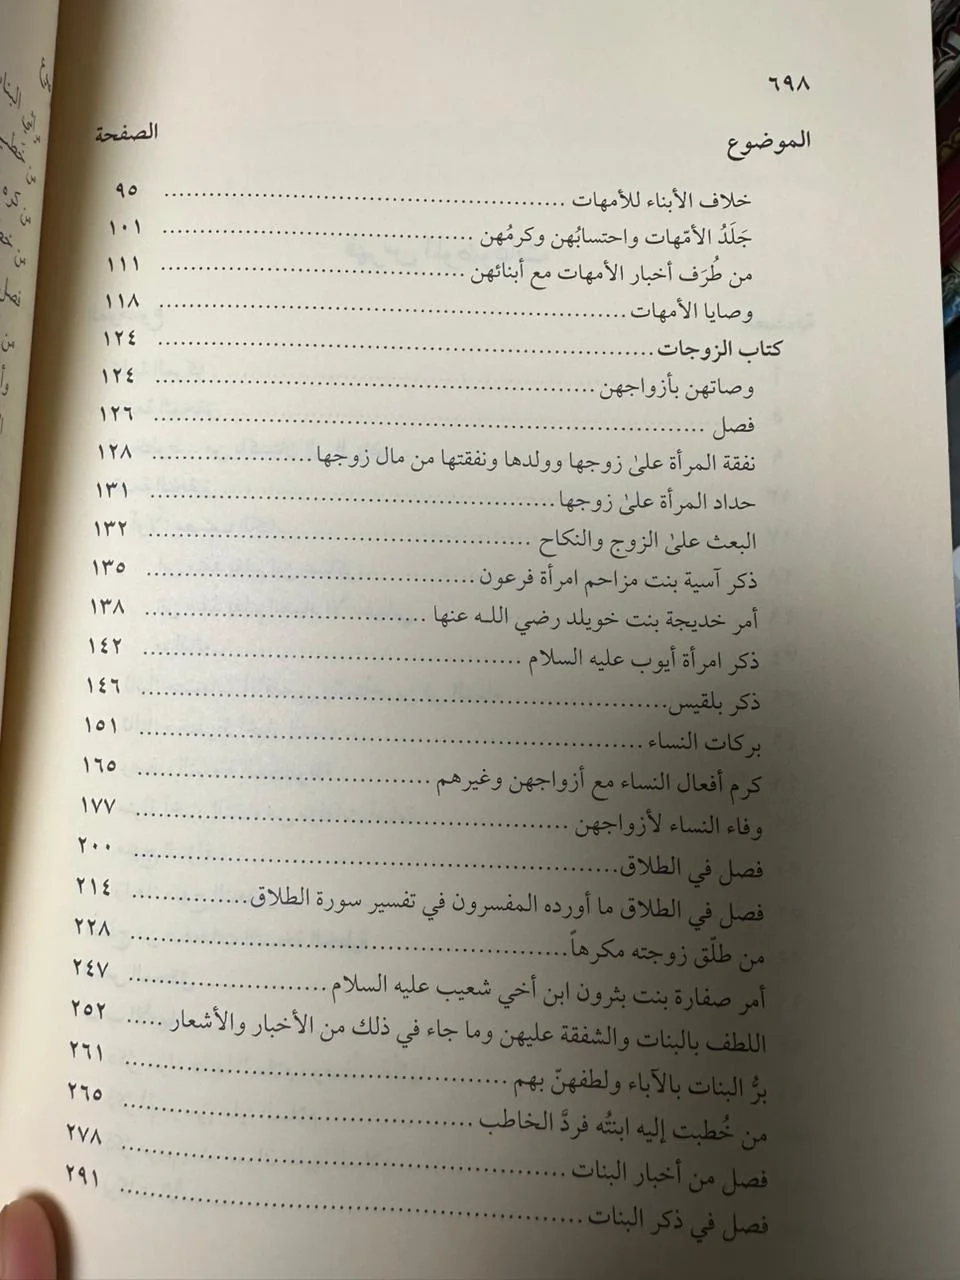 ٦٩٨
الموضوع الصفحة
خلاف الأبناء للأمهات ........ ٩٥
جَلَدُ الأمّهات واحتسابُهن وكرمُهن ........ ١٠١
من طُرَف أخبار الأمهات مع أبنائهن ........ ١١١
وصايا الأمهات ........ ١١٨
كتاب الزوجات ........ ١٢٤
وصاتهن بأزواجهن ........ ١٢٤
فصل ........ ١٢٦
نفقة المرأة علىٰ زوجها وولدها ونفقتها من مال زوجها ........ ١٢٨
حداد المرأة علىٰ زوجها ........ ١٣١
البعث علىٰ الزوج والنكاح ........ ١٣٢
ذكر آسية بنت مزاحم امرأة فرعون ........ ١٣٥
أمر خديجة بنت خويلد رضي اللـه عنها ........ ١٣٨
ذكر امرأة أيوب عليه السلام ........ ١٤٢
ذكر بلقيس ........ ١٤٦
بركات النساء ........ ١٥١
كرم أفعال النساء مع أزواجهن وغيرهم ........ ١٦٥
وفاء النساء لأزواجهن ........ ١٧٧
فصل في الطلاق ........ ٢٠٠
فصل في الطلاق ما أورده المفسرون في تفسير سورة الطلاق ........ ٢١٤
من طلّق زوجته مكرهاً ........ ٢٢٨
أمر صفارة بنت يثرون ابن أخي شعيب عليه السلام ........ ٢٤٧
اللطف بالبنات والشفقة عليهن وما جاء في ذلك من الأخبار والأشعار ..... ٢٥٢
برُّ البنات بالآباء ولطفهنّ بهم ........ ٢٦١
من خُطبت إليه ابنتُه فردَّ الخاطب ........ ٢٦٥
فصل من أخبار البنات ........ ٢٧٨
فصل في ذكر البنات ........ ٢٩١